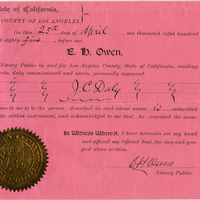 State of California,
COUNTY OF LOS ANGELES
On this 25th day of April one thousand eight hundred
and eighty before me
E. H. Owen,
Notary Public in and for Los Angeles County, State of California, residing
therein, duly commissioned and sworn, personally appeared
J. C. Daly
known to me to be the person described in and whose name is subscribed
to the within instrument, and acknowledged to me that he executed the same.
In Witness Whereof, I have hereunto set my hand
and affixed my Official Seal, the day and year
first above written.
E H Owen
Notary Public.